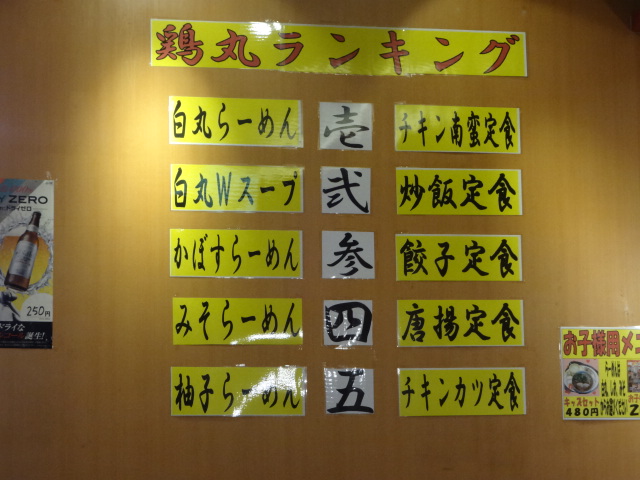 鶏丸ランキング
白丸らーめん 壱 チキン南蛮定食
白丸Wスープ 弐 炒飯定食
かぼすらーめん 参 餃子定食
みそらーめん 四 唐揚定食
柚子らーめん 五 チキンカツ定食
ZERO
ドライゼロ
250円
ドライな
誕生!
お子様用メニ
らーめんは
キッズセット
480円